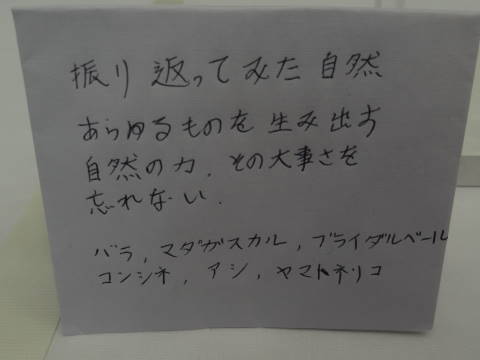 振り返ってみた自然
あらゆるものを生み出す
自然の力、その大事さを
忘れない。
バラ,マダガスカル,ブライダルベール
コンシネ,アシ,ヤマトネリコ